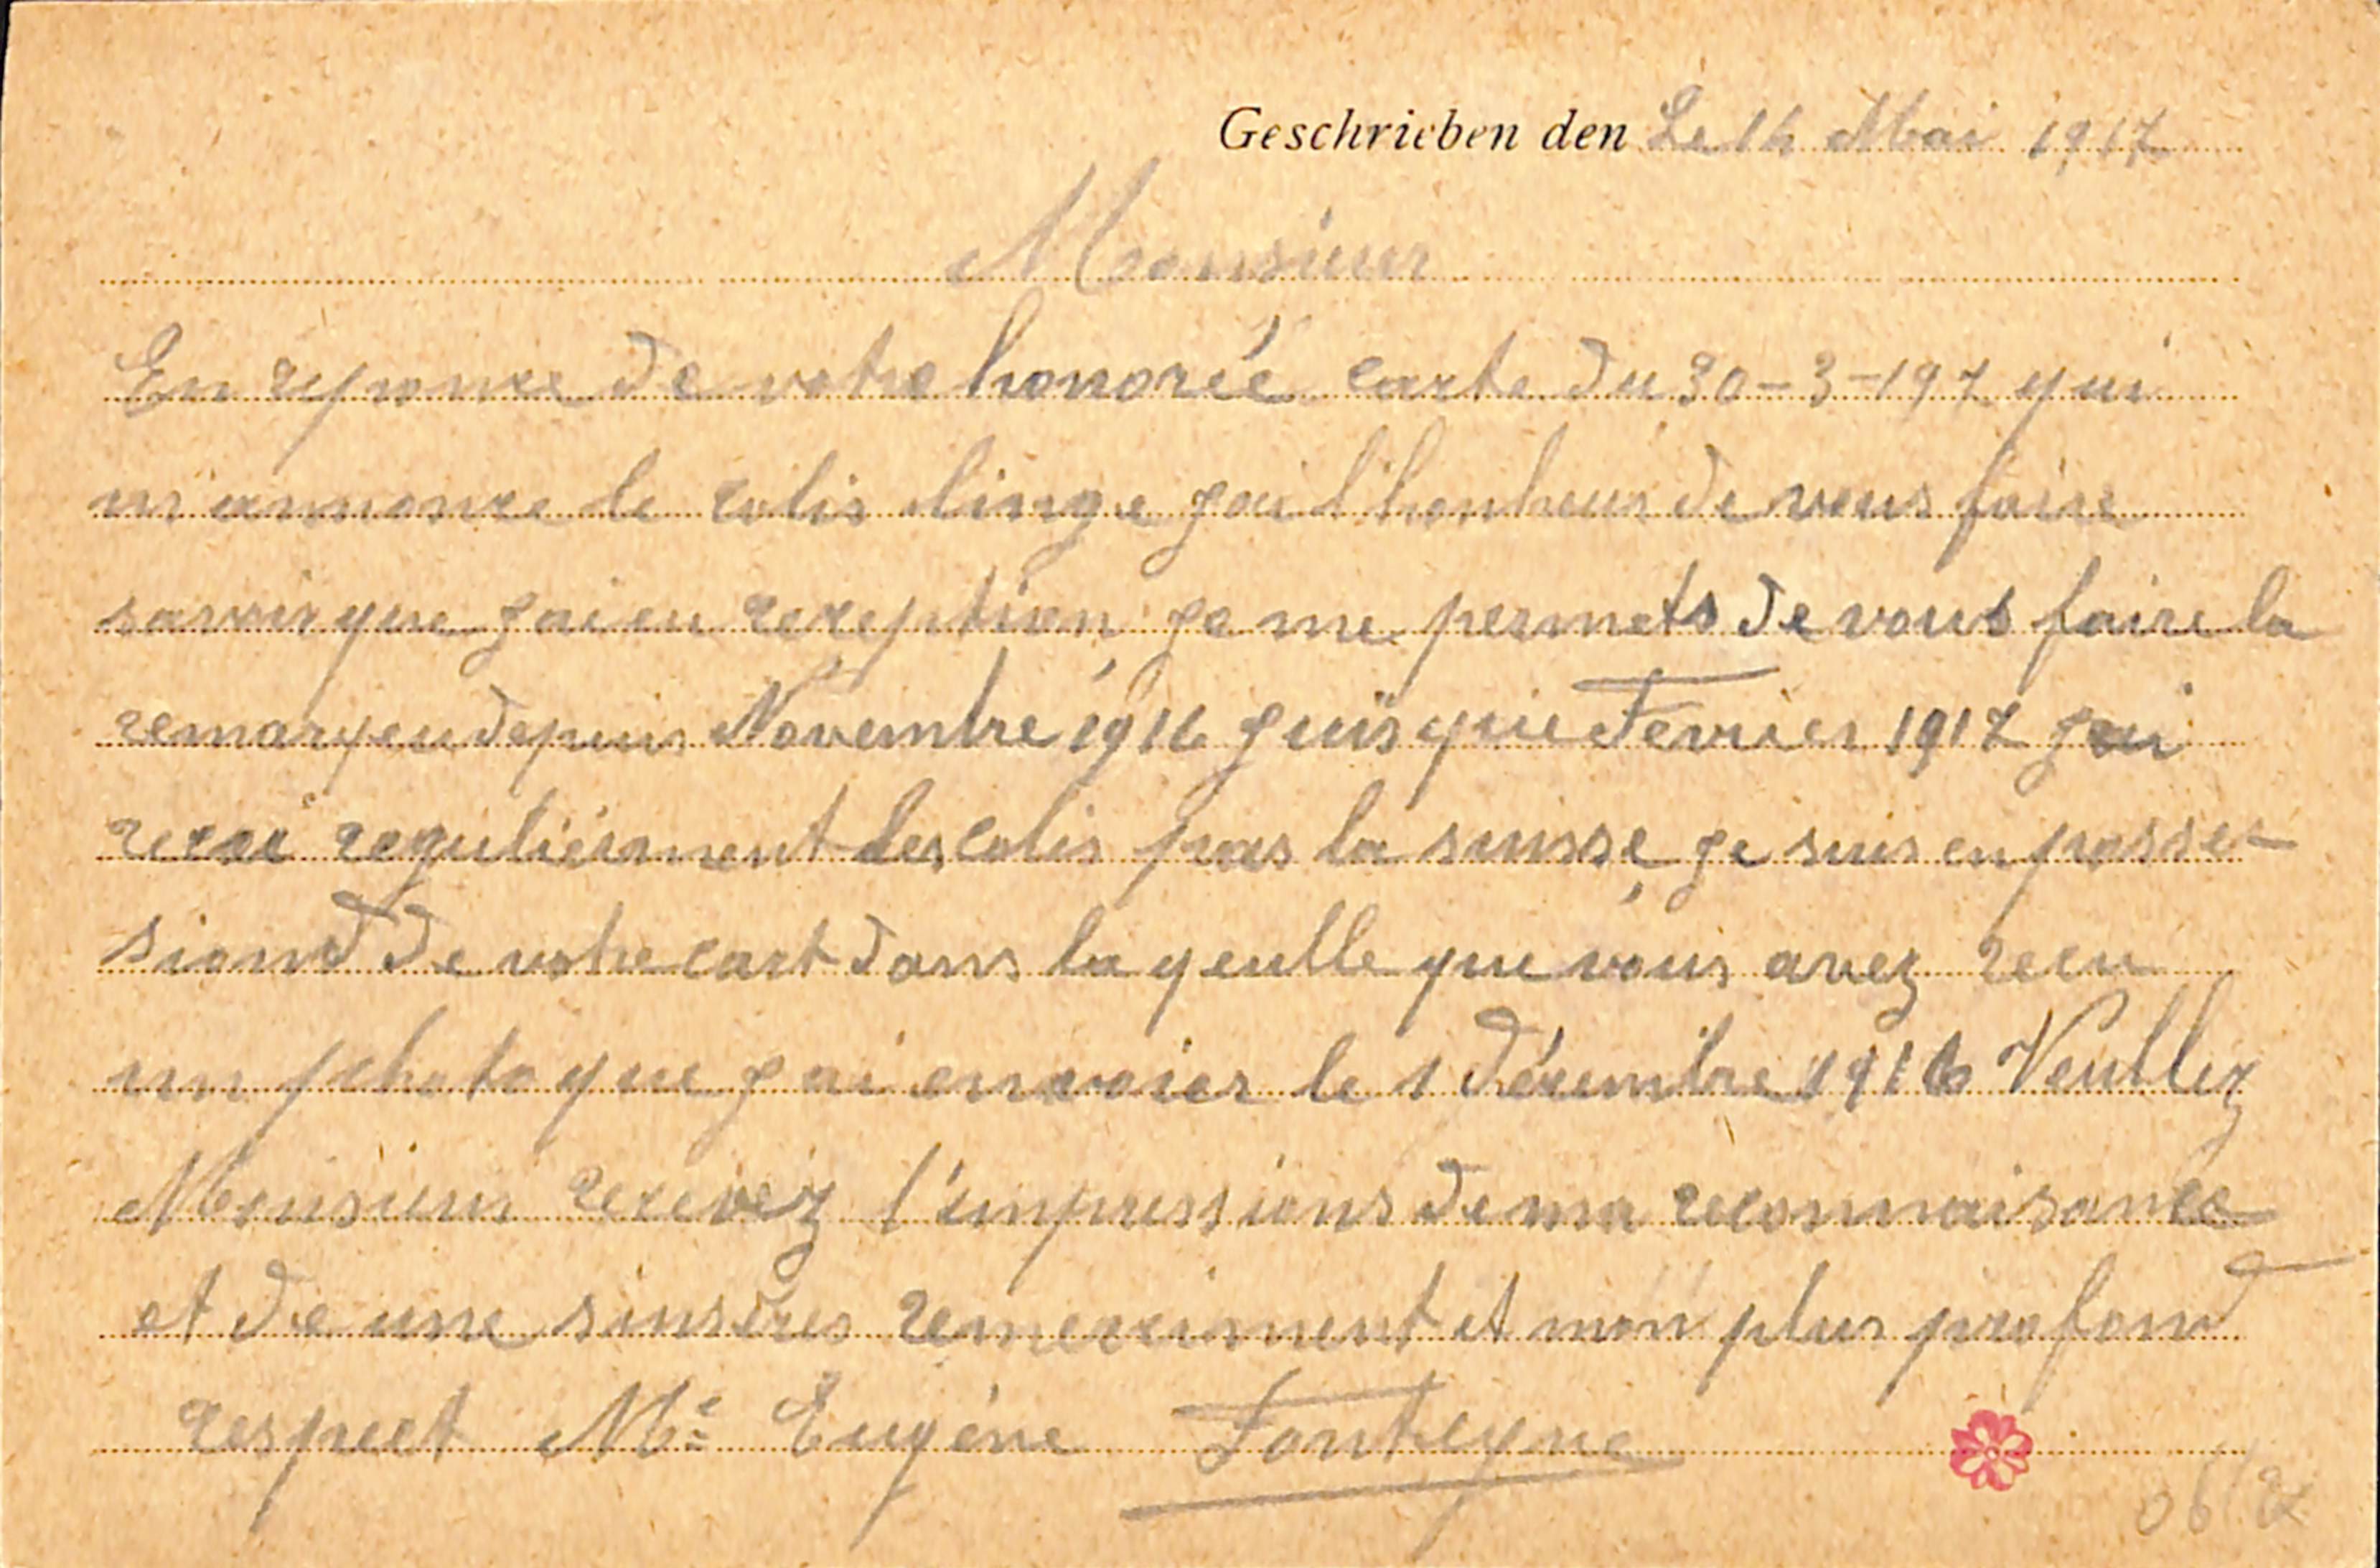 Geschrieben den Le 14 Mai 1917
Monsieur
En reponce de votre honorée carte du 30-3-197 qui
m'annonce le colis linge jai l'honheur de vous faire
savoir que jai eu reception je me permets de vous faire la
remarqeu depuis Novembre 1916 juisque Fevrier 1917 jai
recai reguliérment des colis par la suisse je suis en posses-
siond de votre cart dans la qeulle que vous avez recu
un photo que jai envoier le 1 décembre 1916 Veuller
Monsieur recevez l'impressions de ma reconnaisance
et de une sinsères remerciment et mon plus profond
respect Mr Eugène Fonteyne